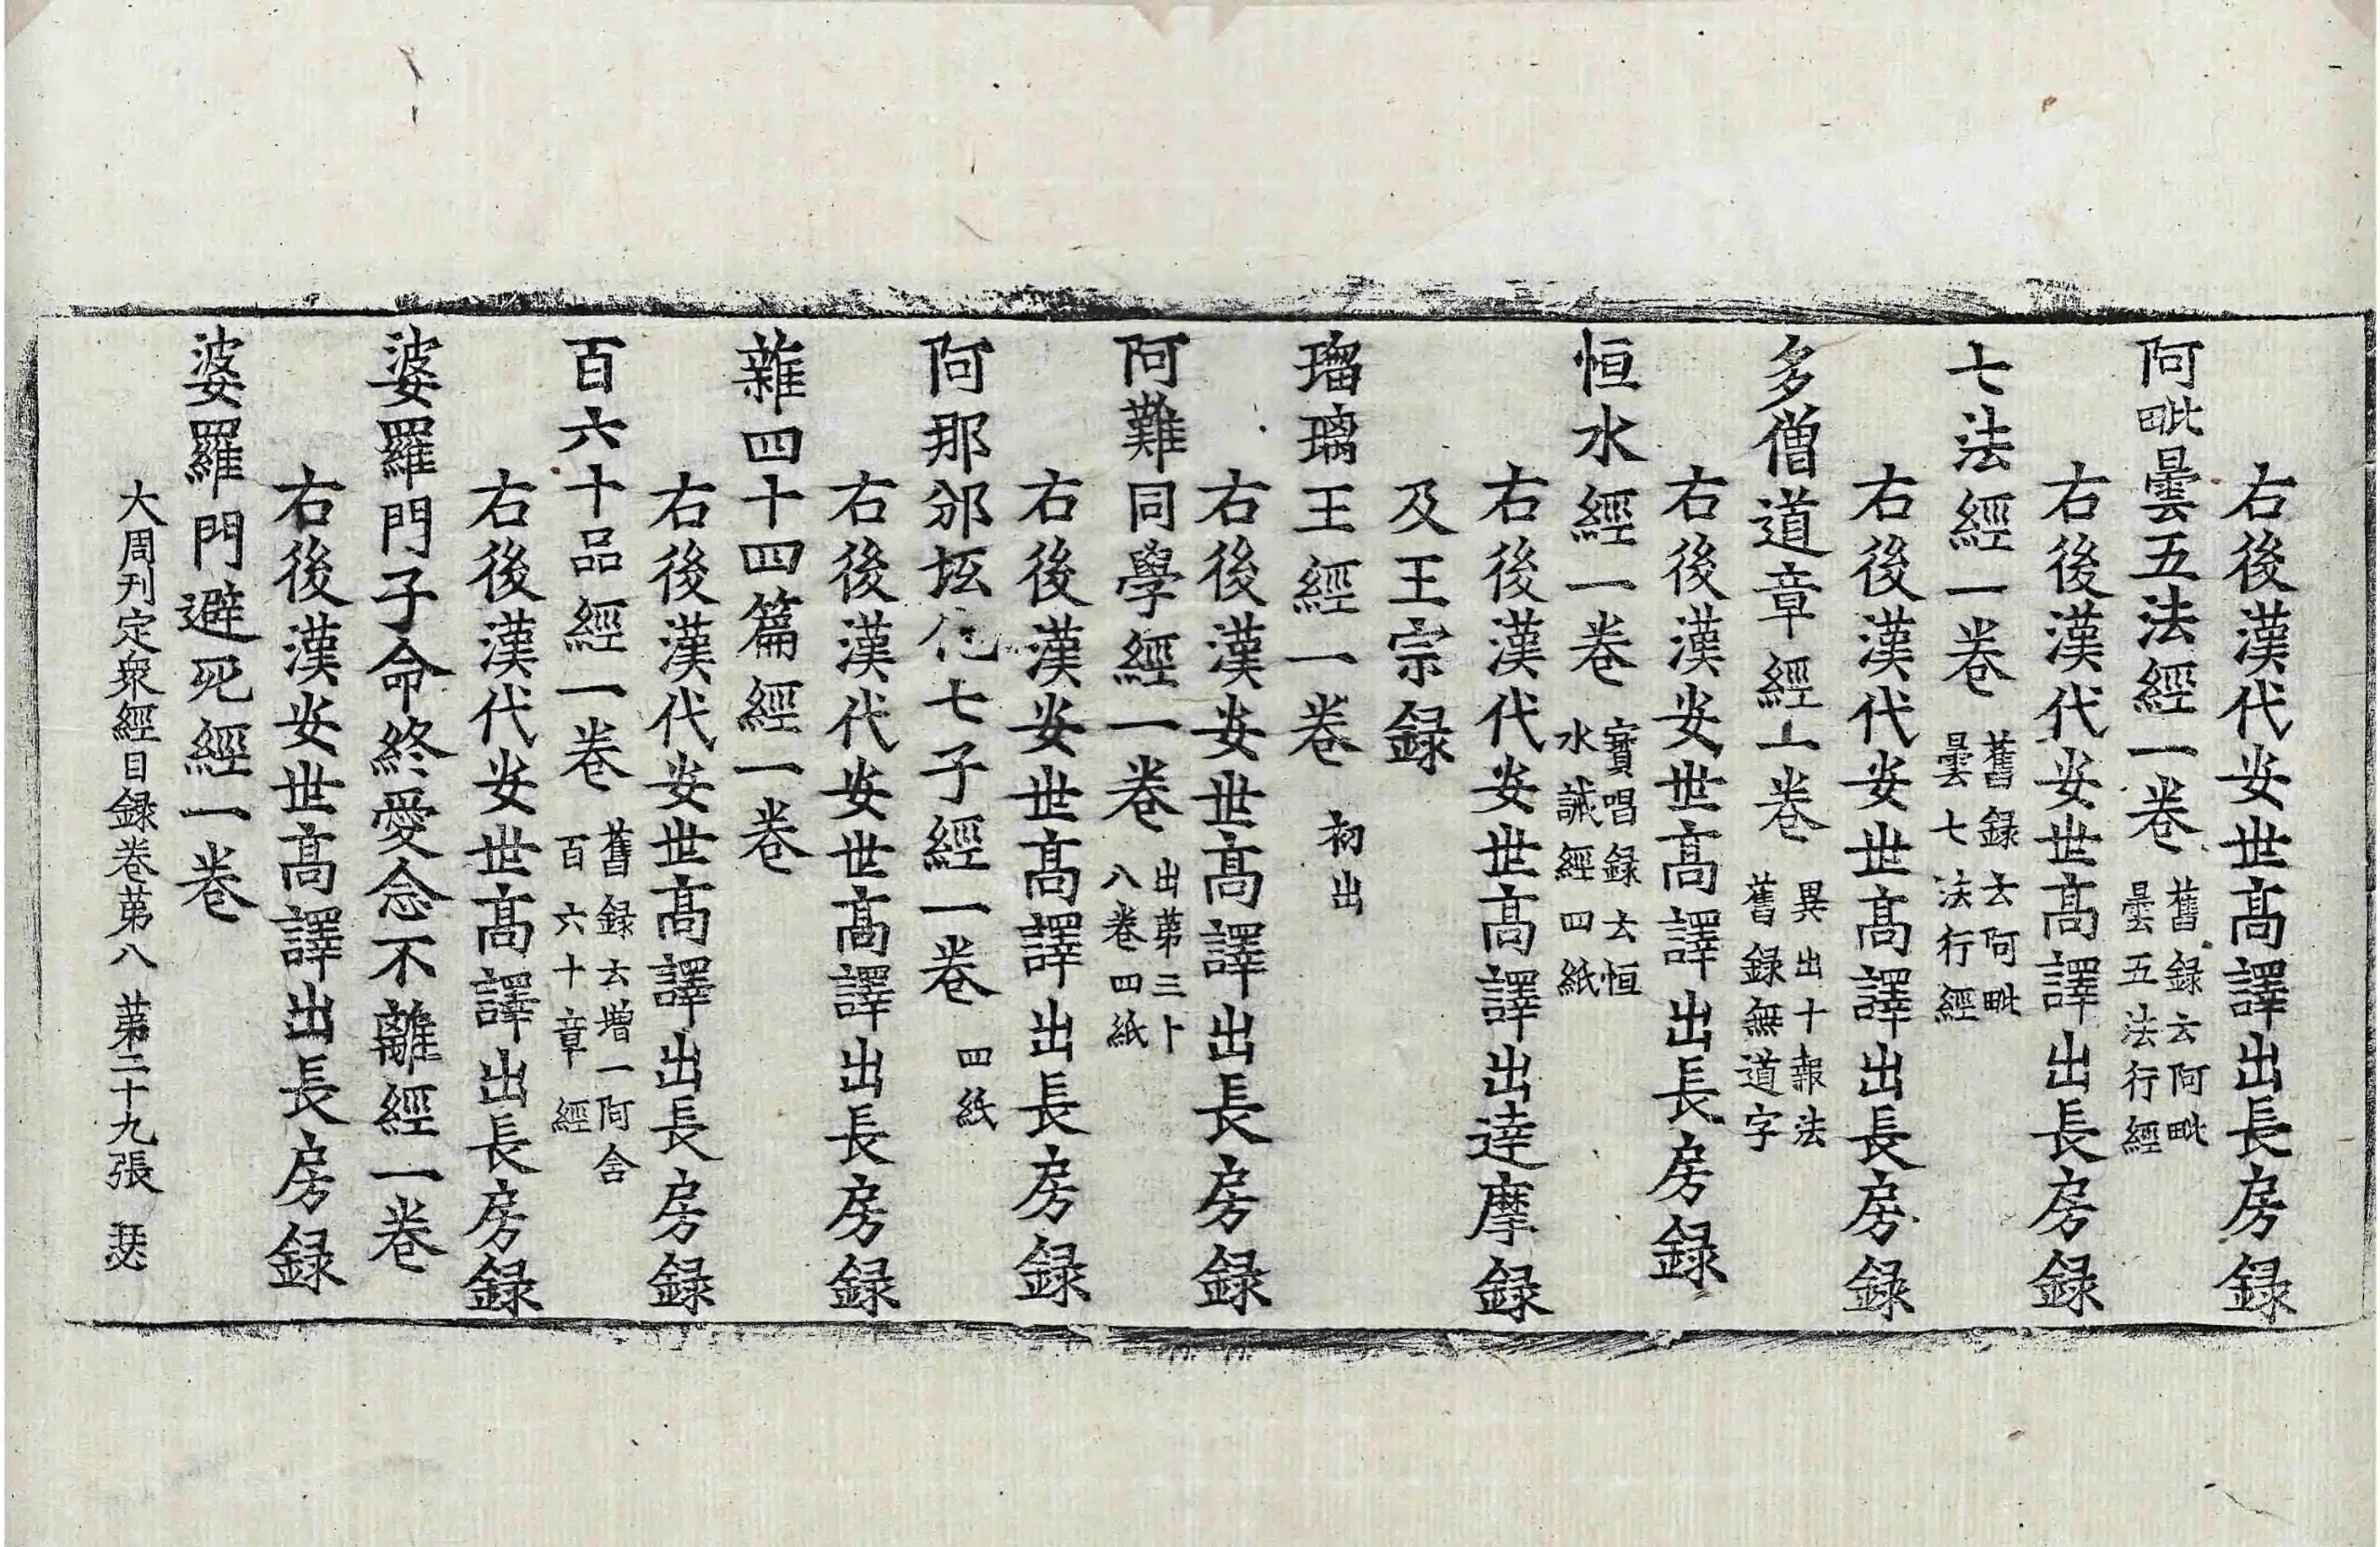 右後漢代安世高譯出長房録
阿毗曇五法經一卷 舊録云阿毗曇五法行經
右後漢代安世高譯出長房録
七法經一卷 舊録云阿毗曇七法行經
右後漢代安世高譯出長房録
多僧道章經一卷 異出十報法舊録無道字
右後漢安世高譯出長房録
恒水經一卷 寶唱録云恒水誡經四紙
右後漢代安世高譯出達摩録
及王宗録
瑠璃王經一卷 初出
右後漢安世高譯出長房録
阿難同學經一卷 出苐三卜八卷四紙
右後漢安世高譯出長房録
阿那邠坻化七子經一卷 四紙
右後漢代安世高譯出長房録
雜四十四篇經一卷
右後漢代安世高譯出長房録
百六十品經一卷 舊録云增一阿含百六十章經
右後漢代安世高譯出長房録
婆羅門子命終愛念不離經一卷
右後漢安世高譯出長房録
婆羅門避死經一卷
大周刊定衆經目録卷苐八 苐二十九張 瑟